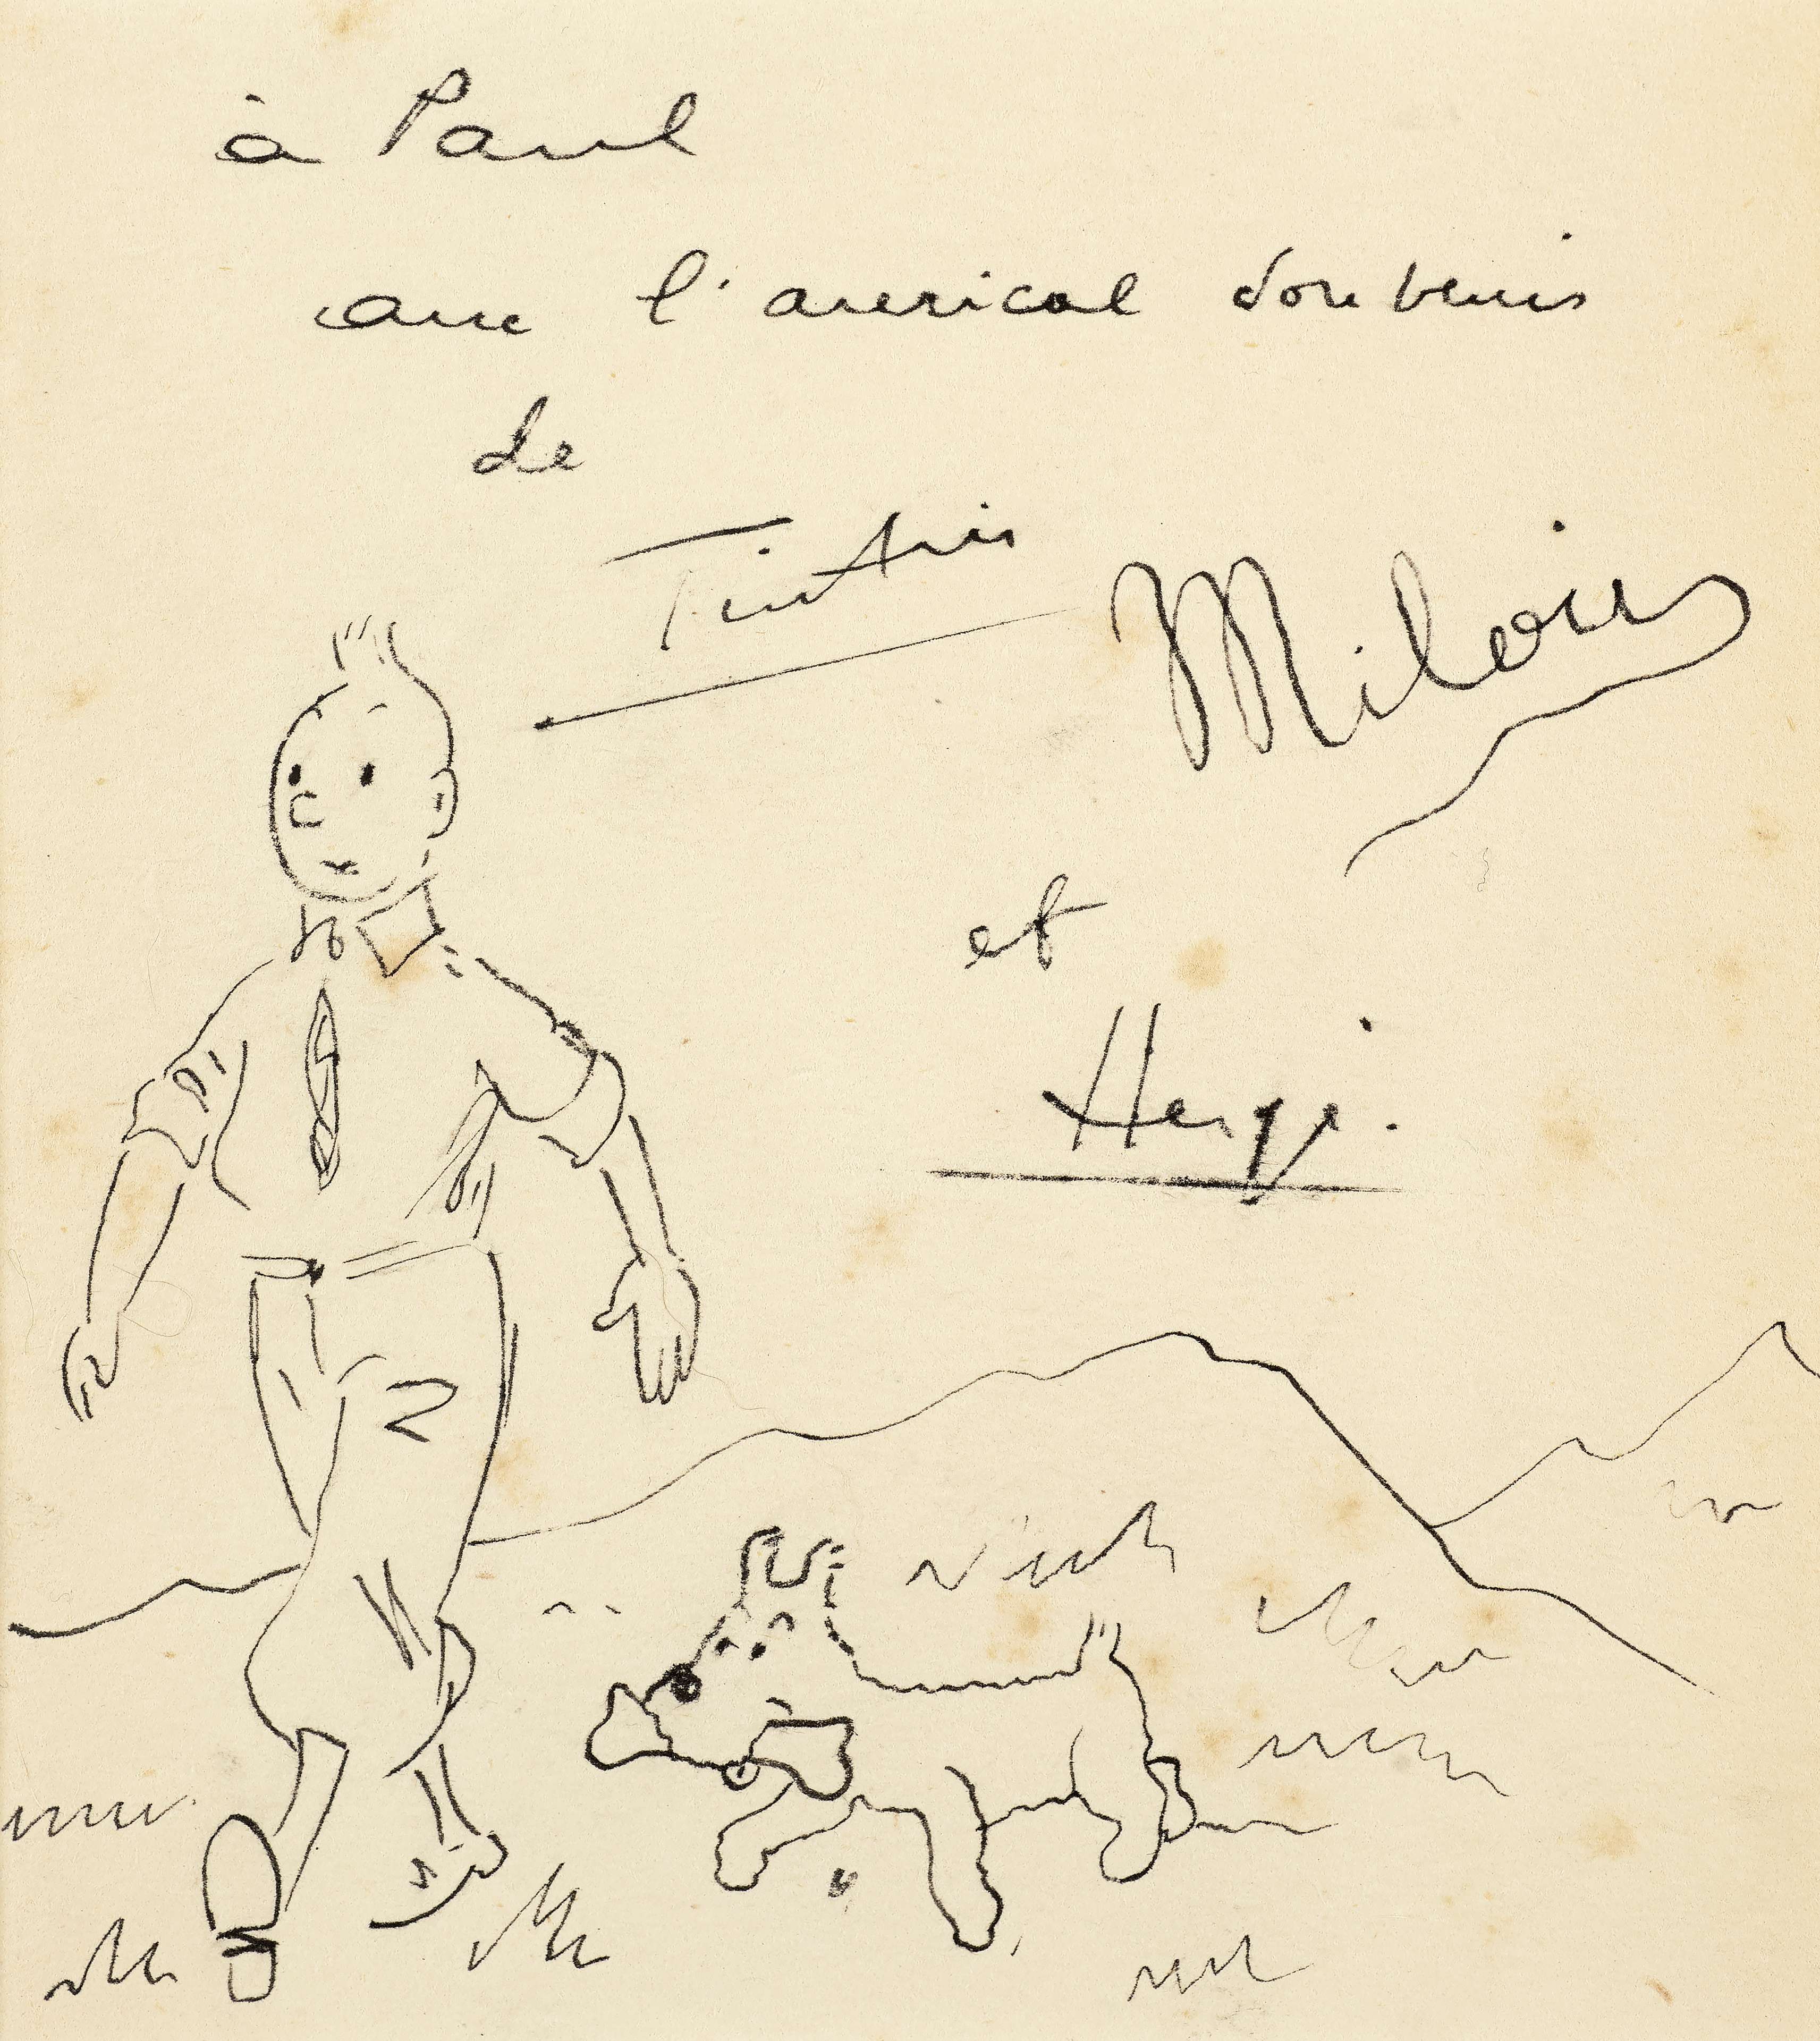 à Paul
avec l'amical souvenir
de
Tintin
Milou
et
Hergé.